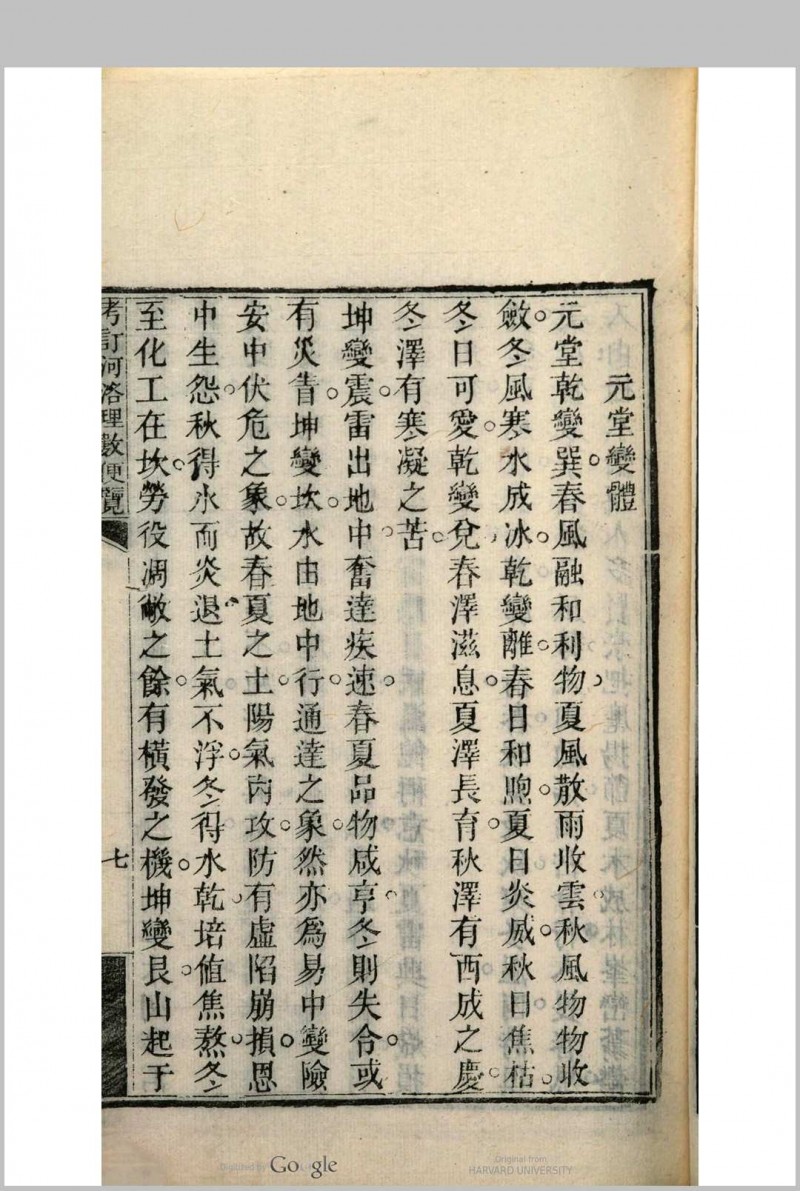 元堂變體
元堂乾變巽春風融和利物夏風散雨收雲秋風物物收
斂冬風寒水成冰乾變離春日和煦夏日炎威秋日焦枯
冬日可愛乾變兌春澤滋息夏澤長育秋澤有西成之慶
冬澤有寒凝之苦
坤變震雷出地中奮達疾速春夏品物咸亨冬則失令或
有災眚坤變坎水由地中行通達之象然亦爲易中變險
安中伏危之象故春夏之土陽氣內攻防有虛陷崩損恩
中生怨秋得水而炎退土氣不浮冬得水乾培値焦熬冬
至化工在坎勞役凋敝之餘有橫發之機坤變艮山起于
考訂河洛理數便覽
七
Google
Original from
HARVARD UNIVERSITY